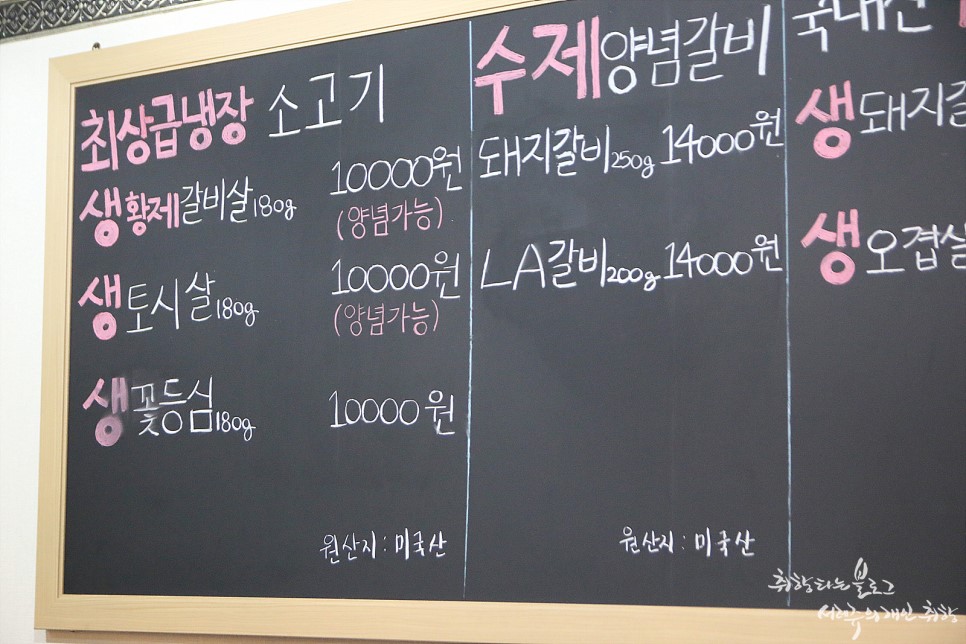 최상급냉장 소고기
생황제갈비살180g 10000원
(양념가능)
생토시살180g 10000원
(양념가능)
생꽃등심180g 10000원
원산지:미국산
수제양념갈비
돼지갈비250g 14000원
LA갈비200g 14000원
원산지:미국산
국내산
생돼지갈
생오겹살
취향타는블로그
서현주의개인취향